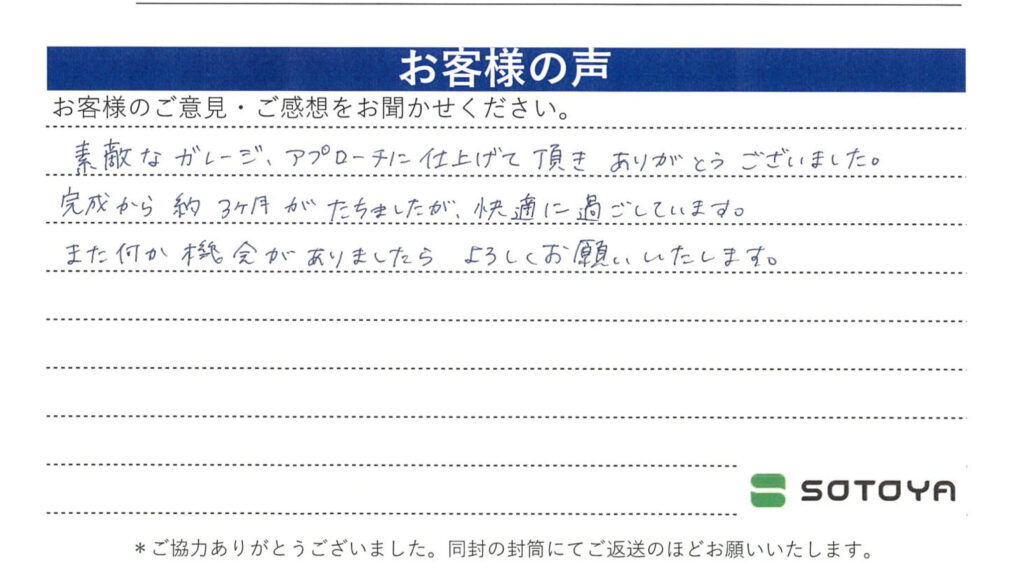 お客様の声
お客様のご意見・ご感想をお聞かせください。
素敵なガレージ、アプローチに仕上げて頂きありがとうございました。
完成から約3ヶ月がたちましたが、快適に過ごしています。
また何か機会がありましたらよろしくお願いいたします。
SOTOYA
*ご協力ありがとうございました。同封の封筒にてご返送のほどお願いいたします。